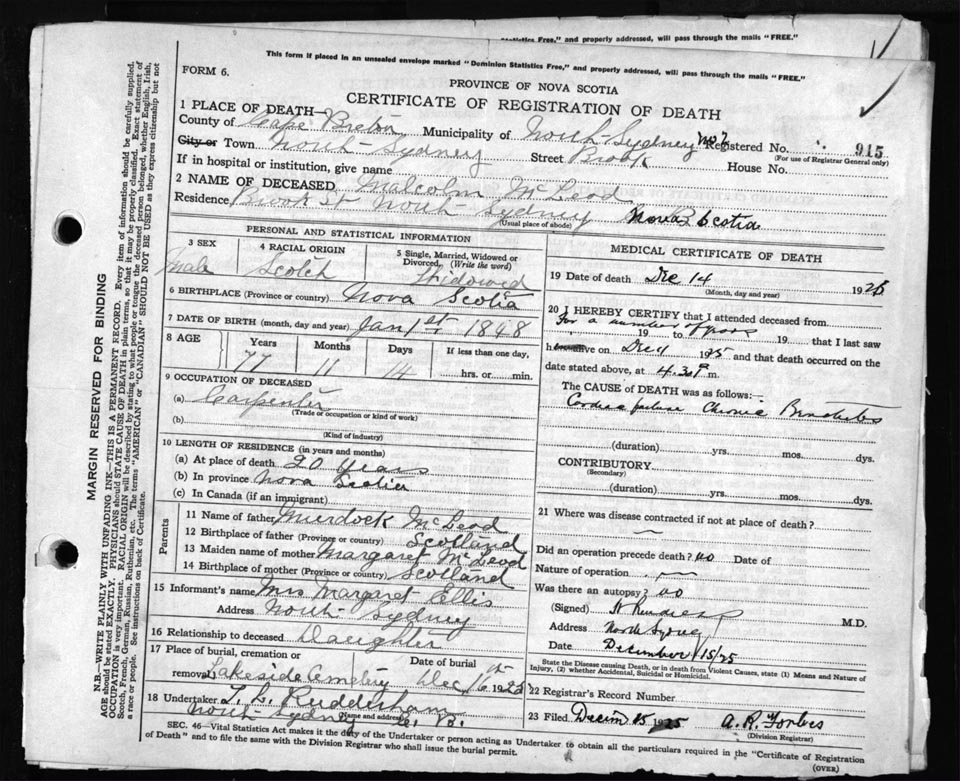 Statistics Free," and properly addressed, will pass through the mails "FREE."
This form if placed in an unsealed envelope marked "Dominion Statistics Free," and properly addressed, will pass through the mails "FREE."
FORM 6.
PROVINCE OF NOVA SCOTIA
CERTIFICATE OF REGISTRATION OF DEATH
1 PLACE OF DEATH—
County of Cape Breton Municipality of North-Sydney No 2 Registered No. 915
(For use of Registrar General only)
City or Town North-Sydney Street Brook House No.
If in hospital or institution, give name
2 NAME OF DECEASED Malcolm McLeod
Residence Brook St North-Sydney Nova Scotia
(Usual place of abode)
PERSONAL AND STATISTICAL INFORMATION
3 SEX 4 RACIAL ORIGIN 5 Single, Married, Widowed or Divorced, (Write the word)
Male Scotch Widowed
6 BIRTHPLACE (Province or country) Nova Scotia
7 DATE OF BIRTH (month, day and year) Jan 1st 1848
8 AGE Years Months Days If less than one day,
77 11 14 hrs. or min.
9 OCCUPATION OF DECEASED
(a) Carpenter
(Trade or occupation or kind of work)
(b)
(Kind of industry)
10 LENGTH OF RESIDENCE (in years and months)
(a) At place of death 20 Years
(b) In province Nova Scotia
(c) In Canada (if an immigrant)
Parents
11 Name of father Murdock McLeod
12 Birthplace of father (Province or country) Scotland
13 Maiden name of mother Margaret McLeod
14 Birthplace of mother (Province or country) Scotland
15 Informant's name Mrs Margaret Ellis
Address North-Sydney
16 Relationship to deceased Daughter
17 Place of burial, cremation or Date of burial
removal Lakeside Cemetery Dec 16th 1925
18 Undertaker T. L. Rudderham
North-Sydney C. B.
(Name and address)
MEDICAL CERTIFICATE OF DEATH
19 Date of death Dec 14 1925
(Month, day and year)
20 I HEREBY CERTIFY that I attended deceased from
For a number of years 19 to 19 that I last saw
h alive on Dec 19 25 and that death occurred on
date stated above, at 4.30 P m.
The CAUSE of DEATH was as follows:
Cardiac failure Chronic Bronchitis
(duration) yrs. mos. dys.
CONTRIBUTORY
(Secondary)
(duration) yrs. mos. dys.
21 Where was disease contracted if not at place of death?
Did an operation precede death? no Date of
Nature of operation
Was there an autopsy? no
(Signed) M.D.
Address North Sydney
Date December 15/25
State the Disease causing Death, or in death from Violent Causes, state (1) Means and Nature of
Injury, (2) whether Accidental, Suicidal or Homicidal.
22 Registrar's Record Number
23 Filed Decem 15 1925 A. R. Forbes
(Division Registrar)
SEC. 46—Vital Statistics Act makes it the duty of the Undertaker or person acting as Undertaker to obtain all the particulars required in the "Certificate of Registration
of Death" and to file the same with the Division Registrar who shall issue the burial permit.
(OVER)
MARGIN RESERVED FOR BINDING
N.B.—WRITE PLAINLY WITH UNFADING INK—THIS IS A PERMANENT RECORD. Every item of information should be carefully supplied.
AGE should be stated EXACTLY. PHYSICIANS should STATE CAUSE OF DEATH in plain terms, so that it may be properly classified. Exact statement of
OCCUPATION is very important. RACIAL ORIGIN will be described by stating to what people or tongue the deceased person belonged, whether English, Irish,
Scotch, French, German, Russian, Ruthenian, etc. The terms "AMERICAN" or "CANADIAN" SHOULD NOT BE USED as they express citizenship but not
a race or people. See instructions on back of Certificate.